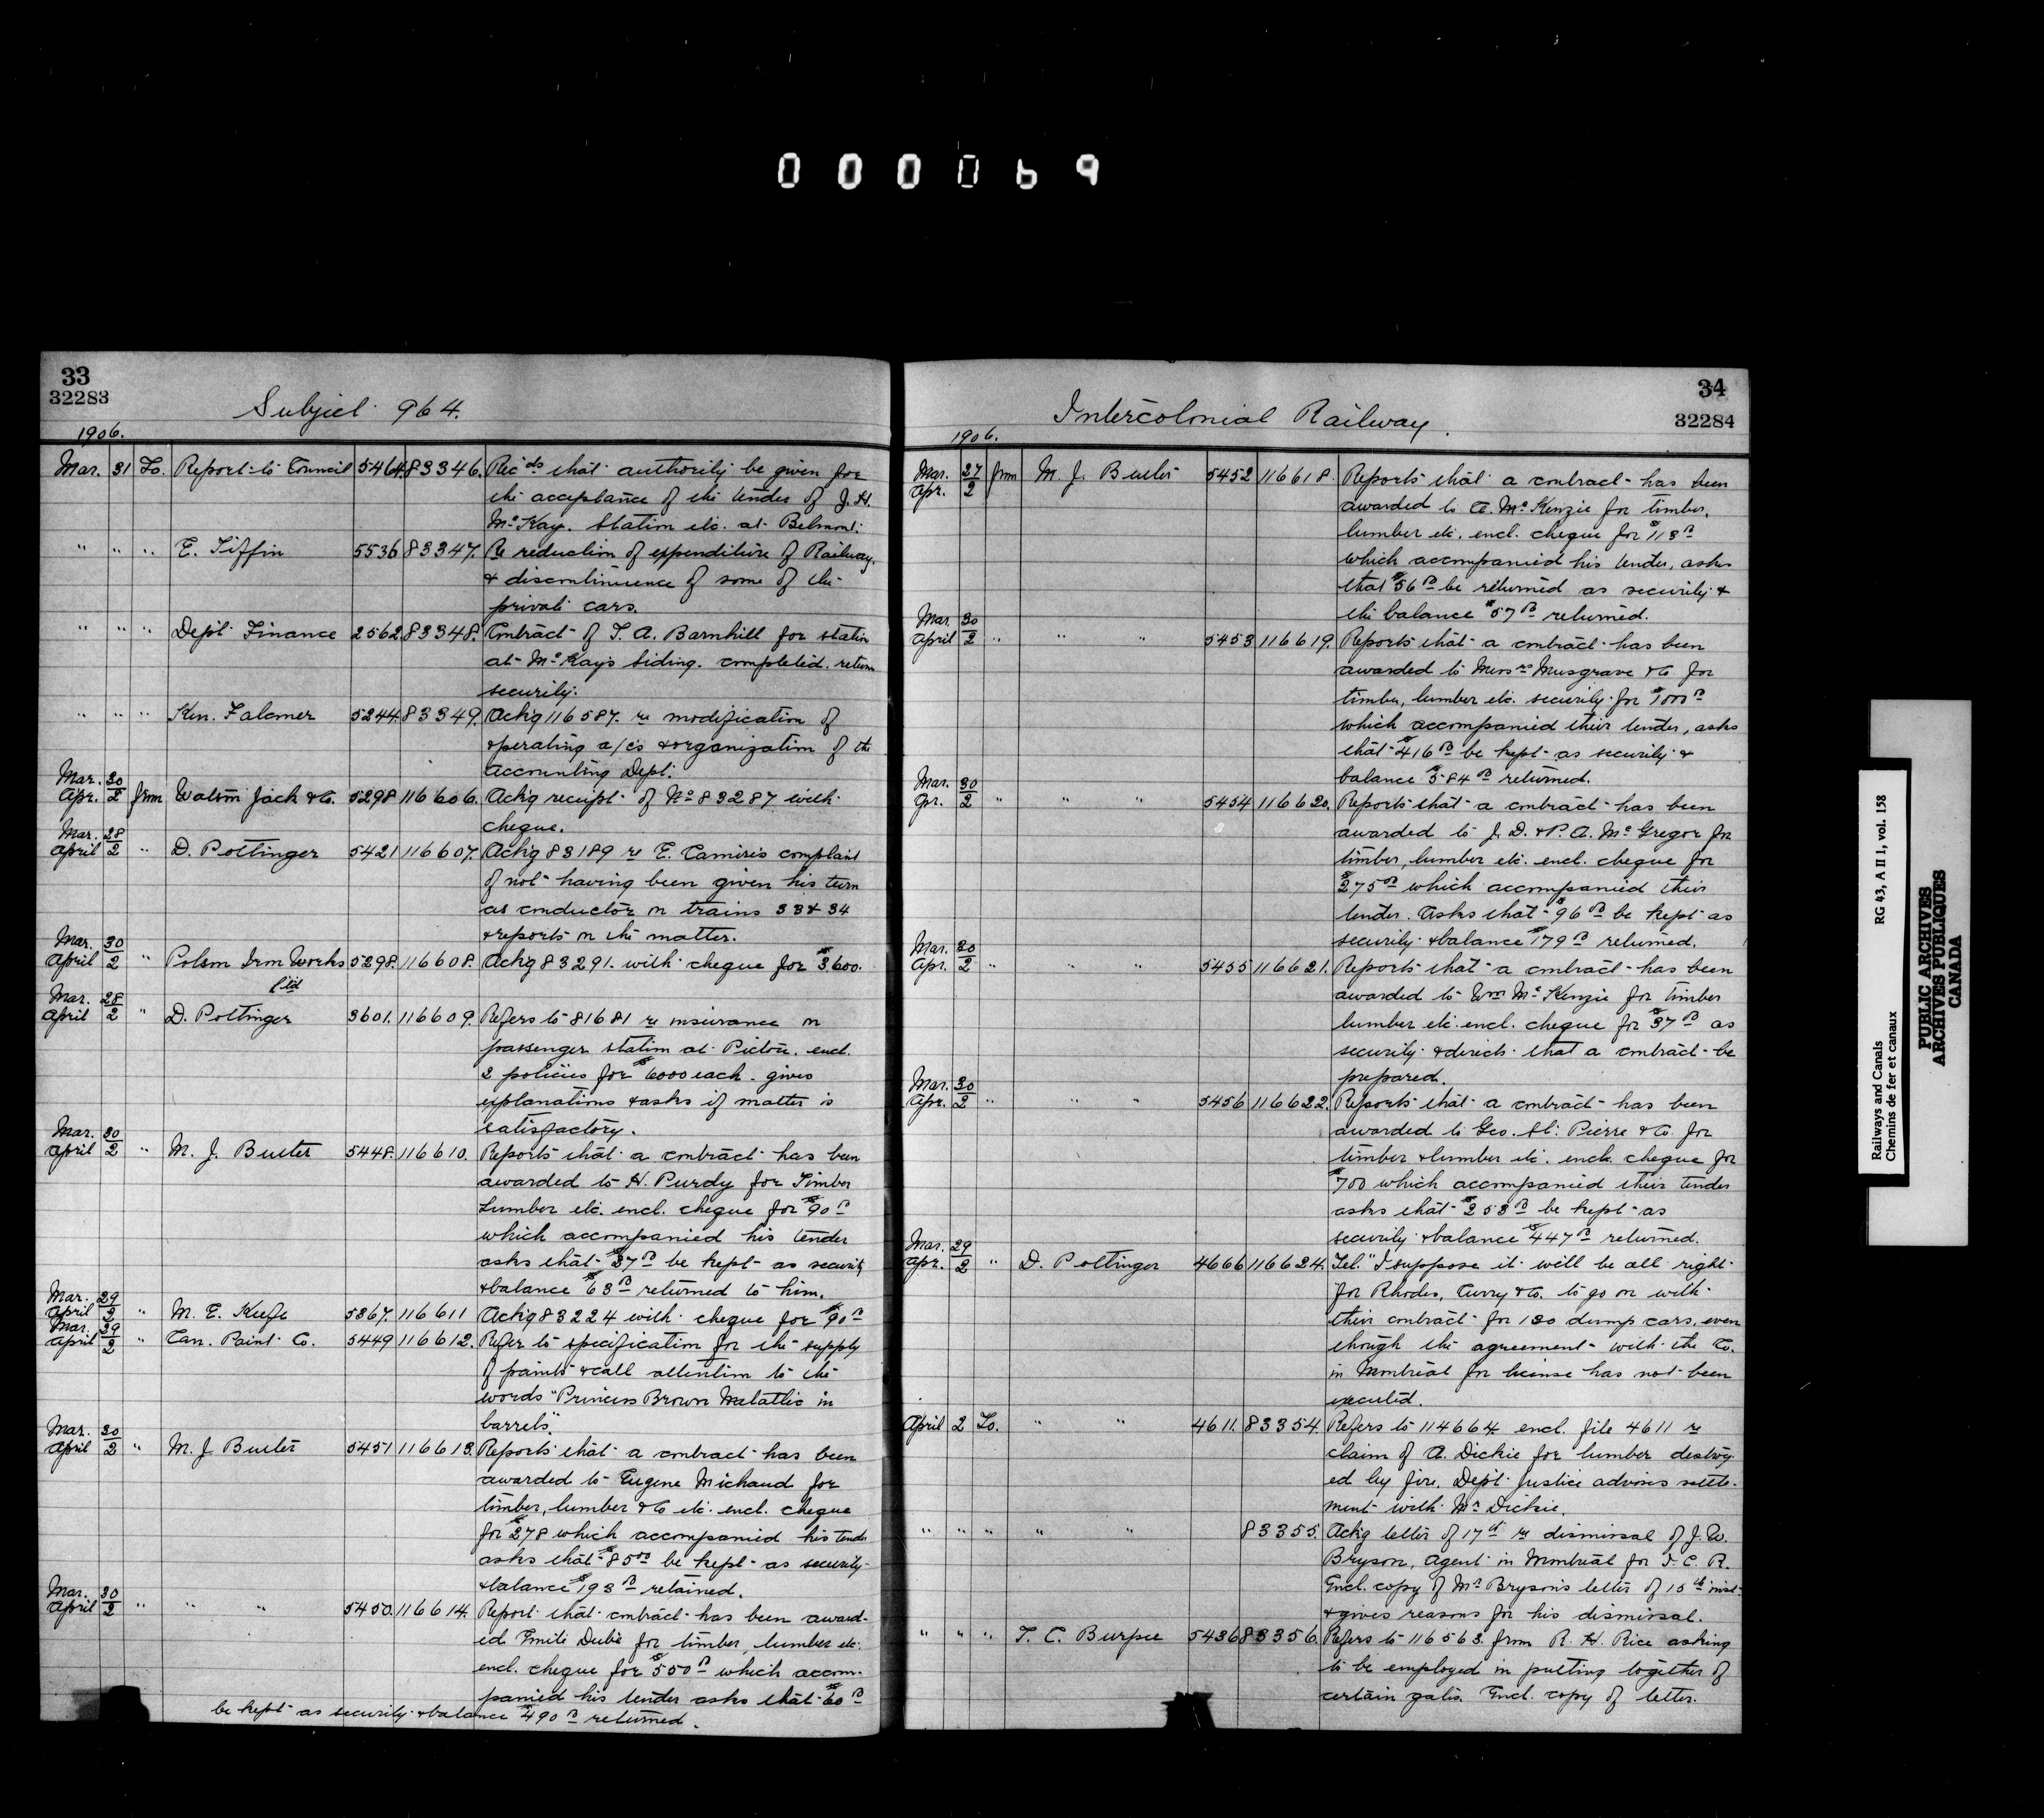 000069
33
32283
Subject 964.
1906.
Mar. 31 To. Report to Council 5464. 83346. Recds that authority be given for
the acceptance of the tender of J. H.
McKay. Station etc. at Belmont.
" " " E. Tiffin 5536 83347. Re reduction of expenditure of Railway.
& discontinuence of some of the
private cars.
" " " Dept Finance 2562 83348. Contract of T. A. Barnhill for station
at McKay's Siding. completed. return
security.
" " " Ken. Falconer 5244 83349. Ackg 116587. re modification of
operating a/cs & organization of the
Accounting Dept.
Mar. 30
Apr. 2 from Watson Jack & Co. 5298 116606. Ackg receipt of No 83287 with
cheque.
Mar. 28
April 2 " D. Pottinger 5421 116607. Ackg 83189 re E. complaint
of not having been given his turn
as conductor on trains 33 & 34
& reports on the matter.
Mar. 30
April 2 " Polson Iron Works 5298. 116608. Ackg 83291. with cheque for $3,600.
Ltd
Mar. 28
April 2 " D. Pottinger 3601. 116609. Refers to 81681 re insurance on
passenger station at Pictou. encl.
2 policies for $6000 each. gives
explanations & asks if matter is
satisfactory.
Mar. 30
April 2 " M. J. Butler 5448. 116610. Reports that a contract has been
awarded to H. Purdy for Timber
Lumber etc. encl. cheque for $90 00
which accompanied his tender
asks that $37 00 be kept as security
& balance $63 00 returned to him.
Mar. 29
April 2 " M. E. Keefe 5367. 116611 Ackg 83224 with cheque for $90 00
Mar. 29
April 2 " Can. Paint Co. 5449 116612. Refer to specification for the supply
of paints & call attention to the
words "Princess Brown Metallic in
barrels".
Mar. 30
April 2 " M. J. Butler 5451 116613. Reports that a contract has been
awarded to Eugene Michaud for
timber, lumber & Co etc. encl. cheque
for $278 which accompanied his tender
asks that $85 00 be kept as security
& balance $193 00 retained.
Mar. 30
April 2 " " " 5450. 116614. Report that contract has been award-
ed Emile Dubé for timber lumber etc.
encl. cheque for $550 00 which accom-
panied his tender asks that $60 00
be kept as security & balance $490 00 returned.
34
32284
Intercolonial Railway.
1906.
Mar. 27
Apr. 2 from M. J. Butler 5452 116618. Reports that a contract has been
awarded to A. McKenzie for timber,
lumber etc. encl. cheque for $113 00
which accompanied his tender, asks
that $56 00 be returned as security &
the balance $57 00 returned.
Mar. 30
April 2 " " " 5453 116619. Reports that a contract has been
awarded to Messrs Musgrave & Co for
timber, lumber etc. security for $1000 00
which accompanied their tender, asks
that $416 00 be kept as security &
balance $584 00 returned.
Mar. 30
Apr. 2 " " " 5454 116620. Reports that a contract has been
awarded to J. D. & P. A. McGregor for
timber, lumber etc. encl. cheque for
$275 00 which accompanied their
tender. Asks that $96 00 be kept as
security & balance $179 00 returned.
Mar. 30
Apr. 2 " " " 5455 116621. Reports that a contract has been
awarded to Wm McKenzie for timber
lumber etc. encl. cheque for $37 00 as
security & directs that a contract be
prepared.
Mar. 30
Apr. 2 " " " 5456 116622. Reports that a contract has been
awarded to Geo. St. Pierre & Co. for
timber & lumber etc. encl. cheque for
$700 which accompanied their tender
asks that $253 00 be kept as
security & balance $447 00 returned.
Mar. 29
Apr. 2 " D. Pottinger 4666 116624. Tel. "I suppose it will be all right
for Rhodes, Curry & Co. to go on with
their contract for 130 dump cars, even
though the agreement with the Co.
in Montreal for license has not been
executed.
April 2 To. " " 4611. 83354. Refers to 114664. encl. file 4611 re
claim of A. Dickie for lumber destroy-
ed by fire. Dept Justice advises settle-
ment with Mr Dickie.
" " " " " 83355. Ackg letter of 17th re dismissal of J. W.
Bryson, Agent in Montreal for I. C. R.
Encl. copy of Mr Bryson's letter of 15th inst.
& gives reasons for his dismissal.
" " " T. C. Burpee 5436 83356. Refers to 116563. from R. H. Rice asking
to be employed in putting together of
certain gates. Encl. copy of letter.
Railways and Canals
Chemins de fer et canaux
RG 43, A II 1, vol. 158
PUBLIC ARCHIVES
ARCHIVES PUBLIQUES
CANADA